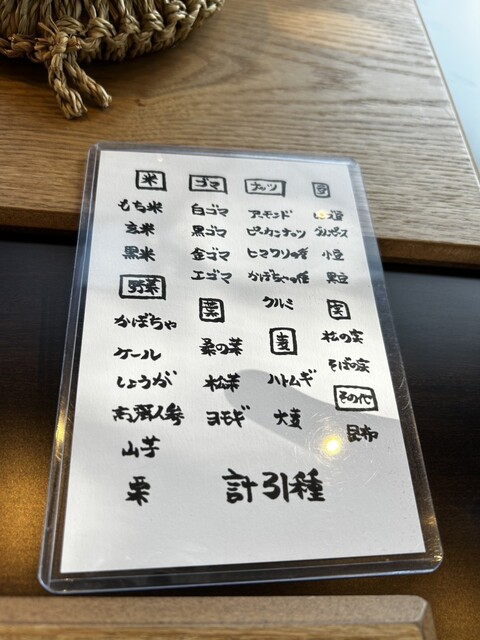 米
もち米
玄米
黒米
野菜
かぼちゃ
ケール
しょうが
高麗人参
山芋
栗
ゴマ
白ゴマ
黒ゴマ
金ゴマ
エゴマ
葉
桑の葉
松葉
ヨモギ
ナッツ
アーモンド
ピーカンナッツ
ヒマワリの種
かぼちゃの種
クルミ
麦
ハトムギ
大麦
豆
グリンピース
小豆
黒豆
実
松の実
そばの実
その他
昆布
計31種